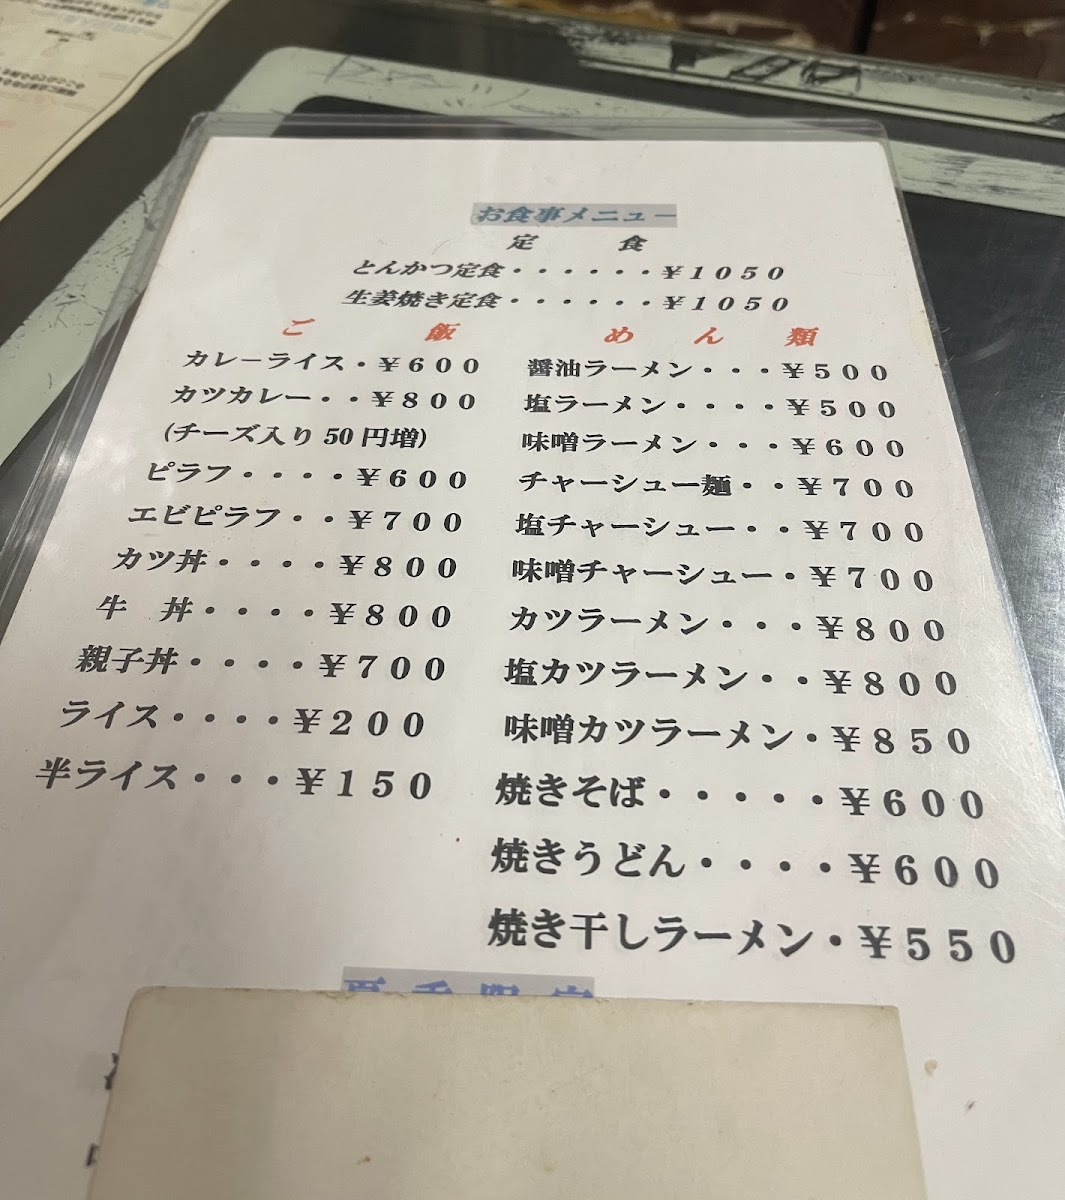 お食事メニュー
定　食
とんかつ定食・・・・・・￥１０５０
生姜焼き定食・・・・・・￥１０５０
ご　飯
カレーライス・￥６００
カツカレー・・￥８００
(チーズ入り 50 円増)
ピラフ・・・・￥６００
エビピラフ・・￥７００
カツ丼・・・・￥８００
牛　丼・・・・￥８００
親子丼・・・・￥７００
ライス・・・・￥２００
半ライス・・・￥１５０
めん類
醤油ラーメン・・・￥５００
塩ラーメン・・・・￥５００
味噌ラーメン・・・￥６００
チャーシュー麺・・￥７００
塩チャーシュー・・￥７００
味噌チャーシュー・￥７００
カツラーメン・・・￥８００
塩カツラーメン・・￥８００
味噌カツラーメン・￥８５０
焼きそば・・・・・￥６００
焼きうどん・・・・￥６００
焼き干しラーメン・￥５５０